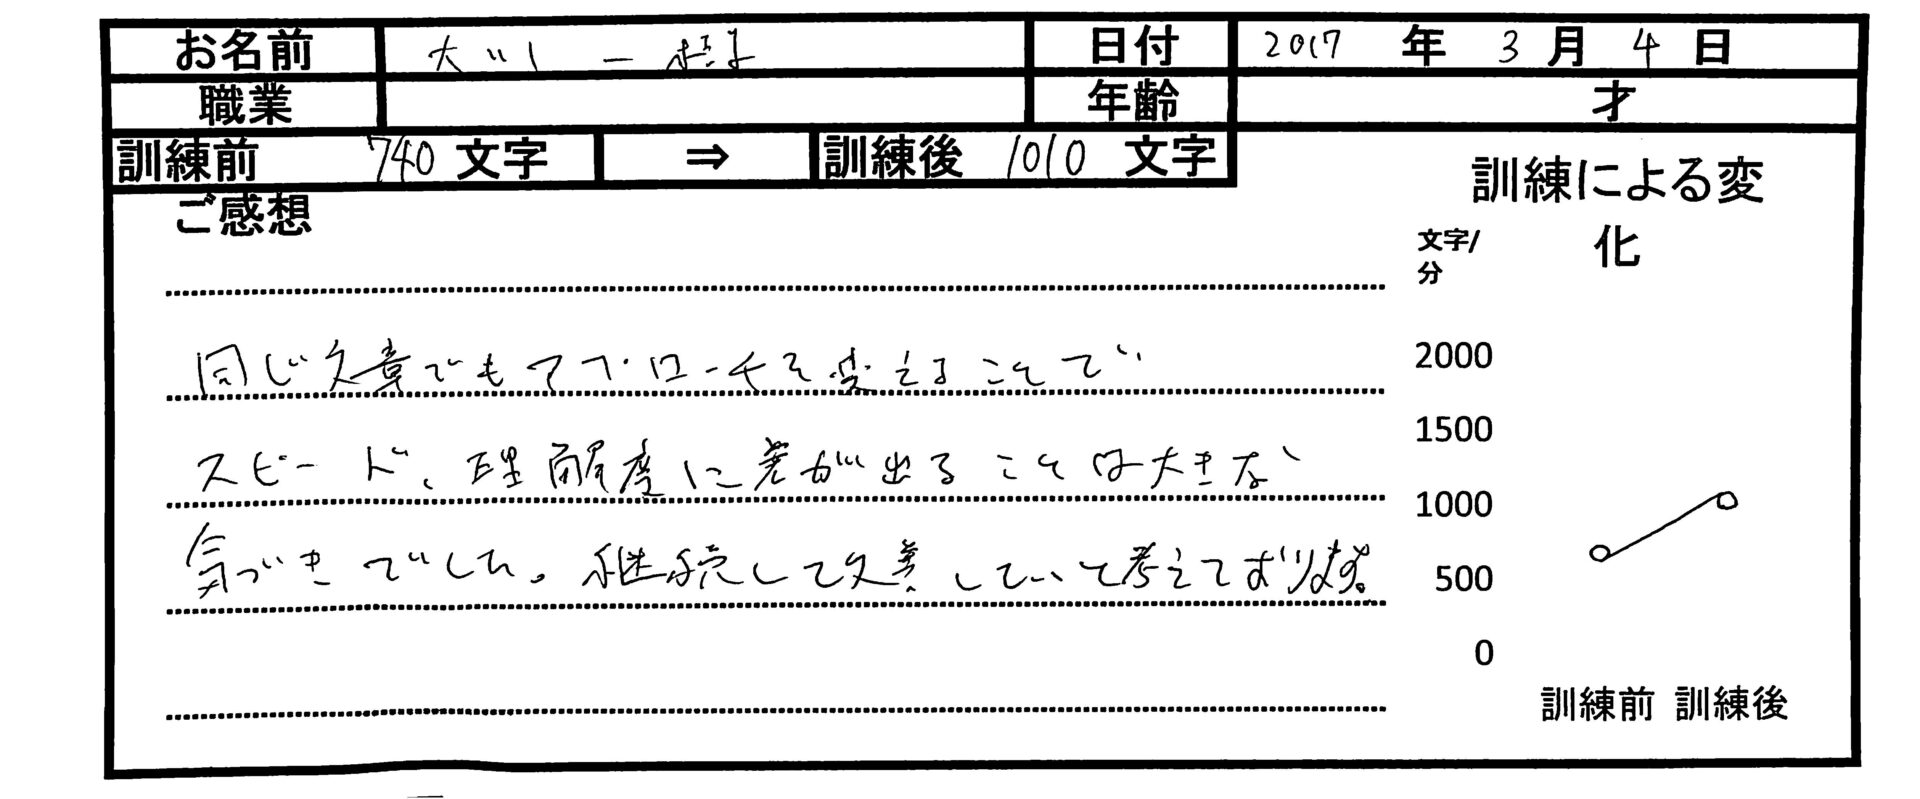 お名前 大川 一樹 日付 2017 年 3 月 4 日
職業 年齢 才
訓練前 740 文字 ⇒ 訓練後 1010 文字
ご感想
訓練による変
化
文字/
分
同じ文章でもアプローチを変えることで
スピード、理解度に差が出ることは大きな
気づきでした。継続して改善していいと考えております。
2000
1500
1000
500
0
訓練前 訓練後